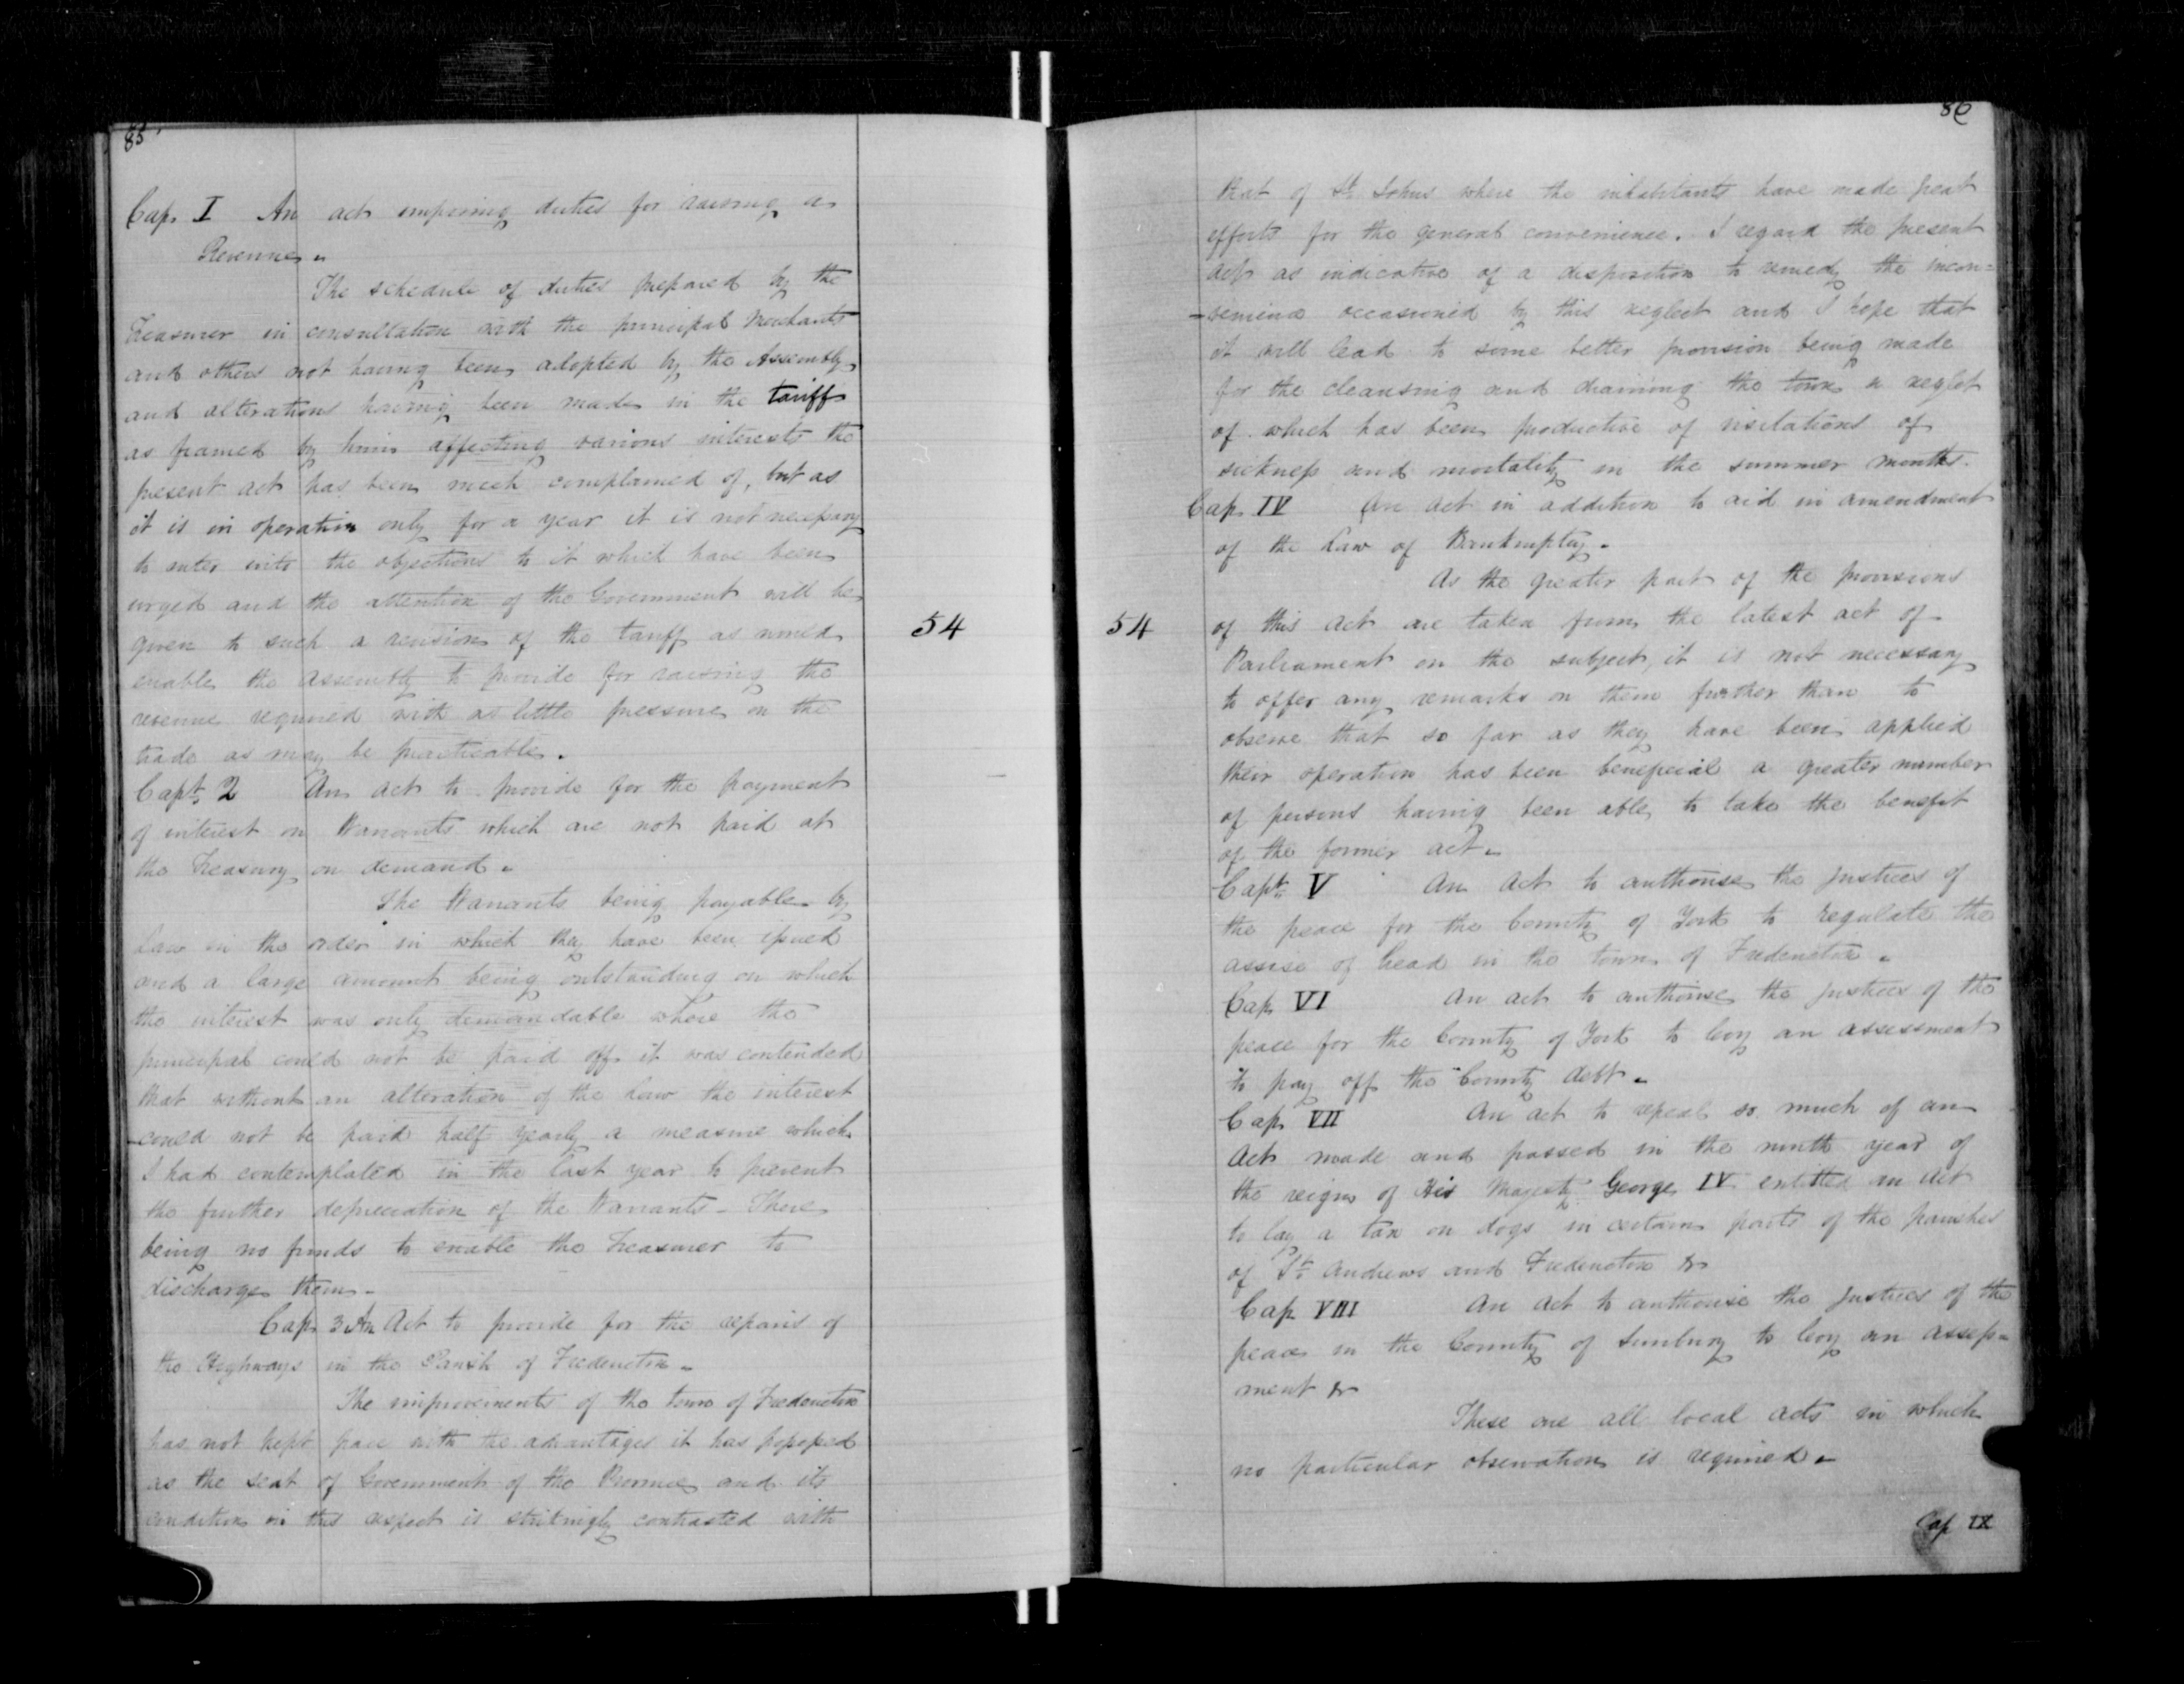 85
Cap. I An act imposing duties for raising a
Revenue.
The schedule of duties prepared by the
Treasurer in consultation with the principal Merchants
and others not having been adopted by the Assembly
and alterations having been made in the tariff
as framed by him affecting various interests the
present act has been much complained of, but as
it is in operation only for a year it is not necessary
to enter into the objections to it which have been
urged and the attention of the Government will be
given to such a revision of the tariff as would
enable the Assembly to provide for raising the
revenue required with as little pressure on the
trade as may be practicable.
Capt. 2 An act to provide for the payment
of interest on Warrants which are not paid at
the Treasury on demand.
The Warrants being payable by
Law in the order in which they have been issued
and a large amount being outstanding on which
the interest was only demandable where the
principal could not be paid off it was contended
that without an alteration of the Law the interest
could not be paid half yearly a measure which
I had contemplated in the last year to prevent
the further depreciation of the Warrants – There
being no funds to enable the Treasurer to
discharge them.
Cap. 3 An Act to provide for the repairs of
the Highways in the Parish of Fredericton.
The improvements of the town of Fredericton
has not kept pace with the advantages it has possessed
as the seat of Government of the Province and its
condition in this respect is strikingly contrasted with
54
86
54
that of St. Johns where the inhabitants have made great
efforts for the general convenience. I regard the present
act as indicative of a disposition to remedy the incon=
-venience occasioned by this neglect and I hope that
it will lead to some better provision being made
for the cleansing and draining the town a neglect
of which has been productive of visitations of
sickness and mortality in the summer months.
Cap. IV An act in addition to aid in amendment
of the Law of Bankruptcy.
As the greater part of the provisions
of this act are taken from the latest act of
Parliament on the subject, it is not necessary
to offer any remarks on them further than to
observe that so far as they have been applied
their operation has been beneficial a greater number
of persons having been able to take the benefit
of the former act.
Capt. V An act to authorise the justices of
the peace for the County of York to regulate the
assise of bread in the town of Fredericton.
Cap. VI An act to authorise the justices of the
peace for the County of York to levy an assessment
to pay off the County debt.
Cap. VII An act to repeal so much of an
Act made and passed in the ninth year of
the reign of His Majesty George IV entitled an act
to lay a tax on dogs in certain parts of the parishes
of St. Andrews and Fredericton &c
Cap VIII An act to authorise the justices of the
peace in the County of Sunbury to levy an assess=
ment &c
These are all local acts in which
no particular observation is required.
Cap IX